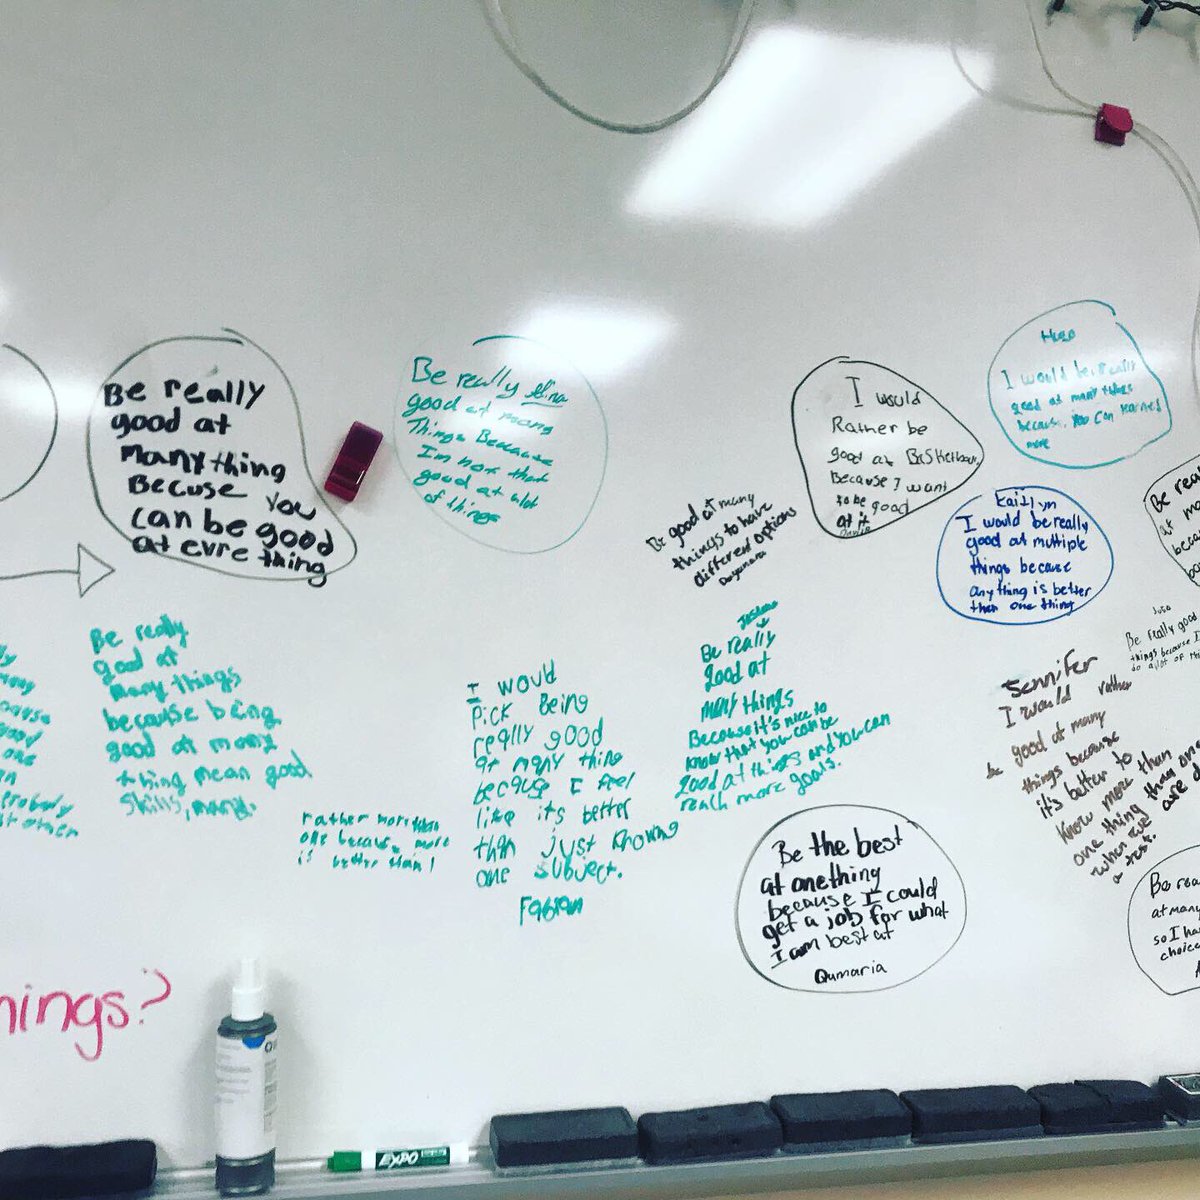 Be really
good at
many thing
Becuse You
can be good
at evre thing
Be really
good at many
Things Because
I'm not that
good at alot
of things
I would
Rather be
good at
Because I want
to be good
at it
Hugo
I would be really
good at many things
because, you can
more
Be good at many
things to have
different options
Kaitlyn
I would be really
good at multiple
things because
any thing is better
then one thing
Be rea
at ma
beca
Be really
good at
many things
because being
good at many
thing mean good
skills, many.
rather more than
one because more
is better than 1
I would
Pick Being
really good
at many thing
because I feel
like its better
than just knowing
one subject.
Fabian
Be really
good at
many things
Because it's nice to
know that you can be
good at things and you can
reach more goals.
Be really good
things because I
do a lot of
Jennifer
I would rather
be good at many
things because
it's better to
know more than
one thing than one
when we are
a test.
Be the best
at one thing
because I could
get a job for what
I am best at
Qumaria
Be rea
at many
so I ha
choice
hings?
EXPO